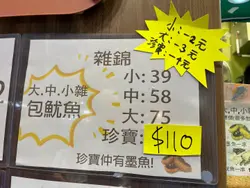 小：-2元
大：-3元
珍寶：-4元
雜錦
大.中.小雜
包魷魚
小：39
中：58
大：75
珍寶：
$110
珍寶仲有墨魚!